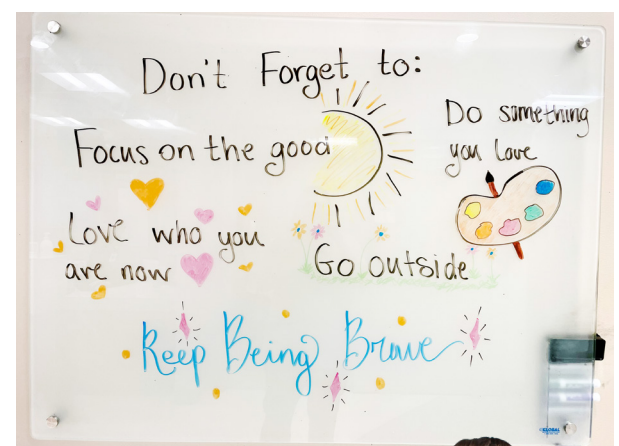 Don't Forget to:
Focus on the good
Do something
you love
Love who you
are now
Go outside
Keep Being Brave
GLOBAL